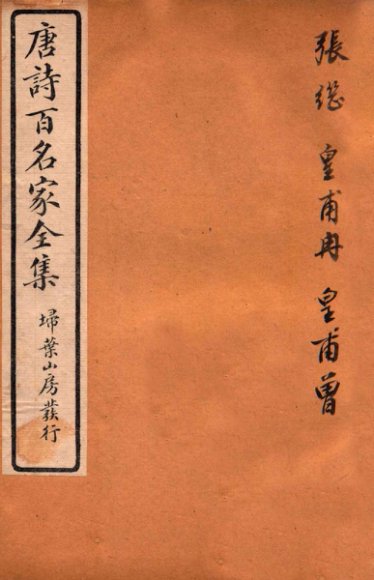 張繼 皇甫冉 皇甫曾
唐詩百名家全集
埽葉山房發行